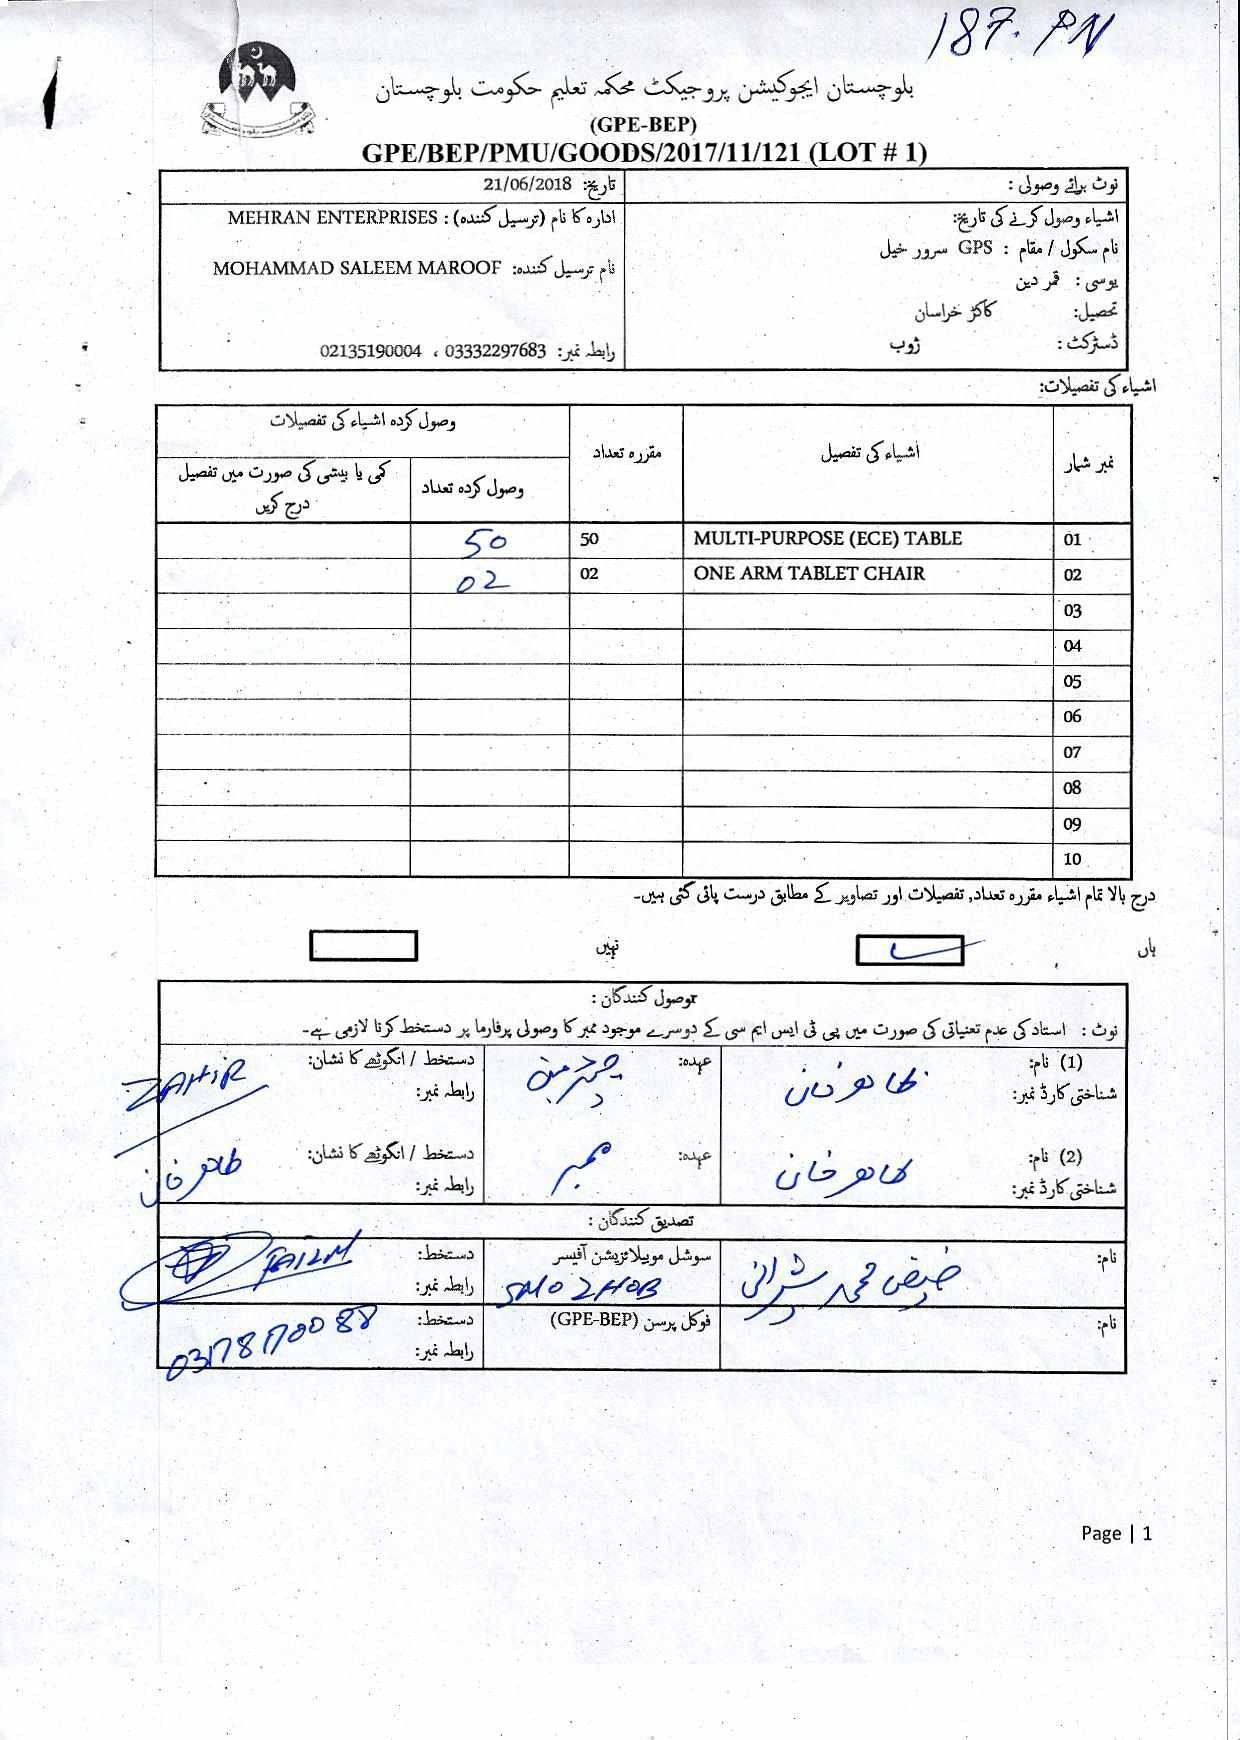 187. PN
بلوچستان ایجوکیشن پروجیکٹ محکمہ تعلیم حکومت بلوچستان
(GPE-BEP)
GPE/BEP/PMU/GOODS/2017/11/121 (LOT # 1)
نوٹ برائے وصولی :
تاریخ: 21/06/2018
اشیاء وصول کرنے کی تاریخ:
نام سکول / مقام : GPS سرور خیل
یوسی : قمر دین
تحصیل: کاکڑ خراسان
ڈسٹرکٹ : ژوب
ادارہ کا نام (ترسیل کنندہ) : MEHRAN ENTERPRISES
نام ترسیل کنندہ: MOHAMMAD SALEEM MAROOF
رابطہ نمبر: 03332297683 ، 02135190004
اشیاء کی تفصیلات:
نمبر شمار
اشیاء کی تفصیل
مقررہ تعداد
وصول کردہ اشیاء کی تفصیلات
وصول کردہ تعداد
کمی یا بیشی کی صورت میں تفصیل
درج کریں
01 MULTI-PURPOSE (ECE) TABLE 50 50
02 ONE ARM TABLET CHAIR 02 02
03
04
05
06
07
08
09
10
درج بالا تمام اشیاء مقررہ تعداد, تفصیلات اور تصاویر کے مطابق درست پائی گئی ہیں۔
ہاں
نہیں
وصول کنندگان :
نوٹ : استاد کی عدم تعیناتی کی صورت میں پی ٹی ایس ایم سی کے دوسرے موجود ممبر کا وصولی پرفارما پر دستخط کرنا لازمی ہے۔
(1) نام: ظاهر خان
شناختی کارڈ نمبر:
عہدہ: چیئرمین
دستخط / انگوٹھے کا نشان: ZAHIR
رابطہ نمبر:
(2) نام: طاهر خان
شناختی کارڈ نمبر:
عہدہ: ممبر
دستخط / انگوٹھے کا نشان: طاهر خان
رابطہ نمبر:
تصدیق کنندگان :
نام: فیض محمد شیرانی
سوشل موبیلائزیشن آفیسر
SMO ZHOB
دستخط:
رابطہ نمبر:
نام:
فوکل پرسن (GPE-BEP)
دستخط:
رابطہ نمبر:
Page | 1